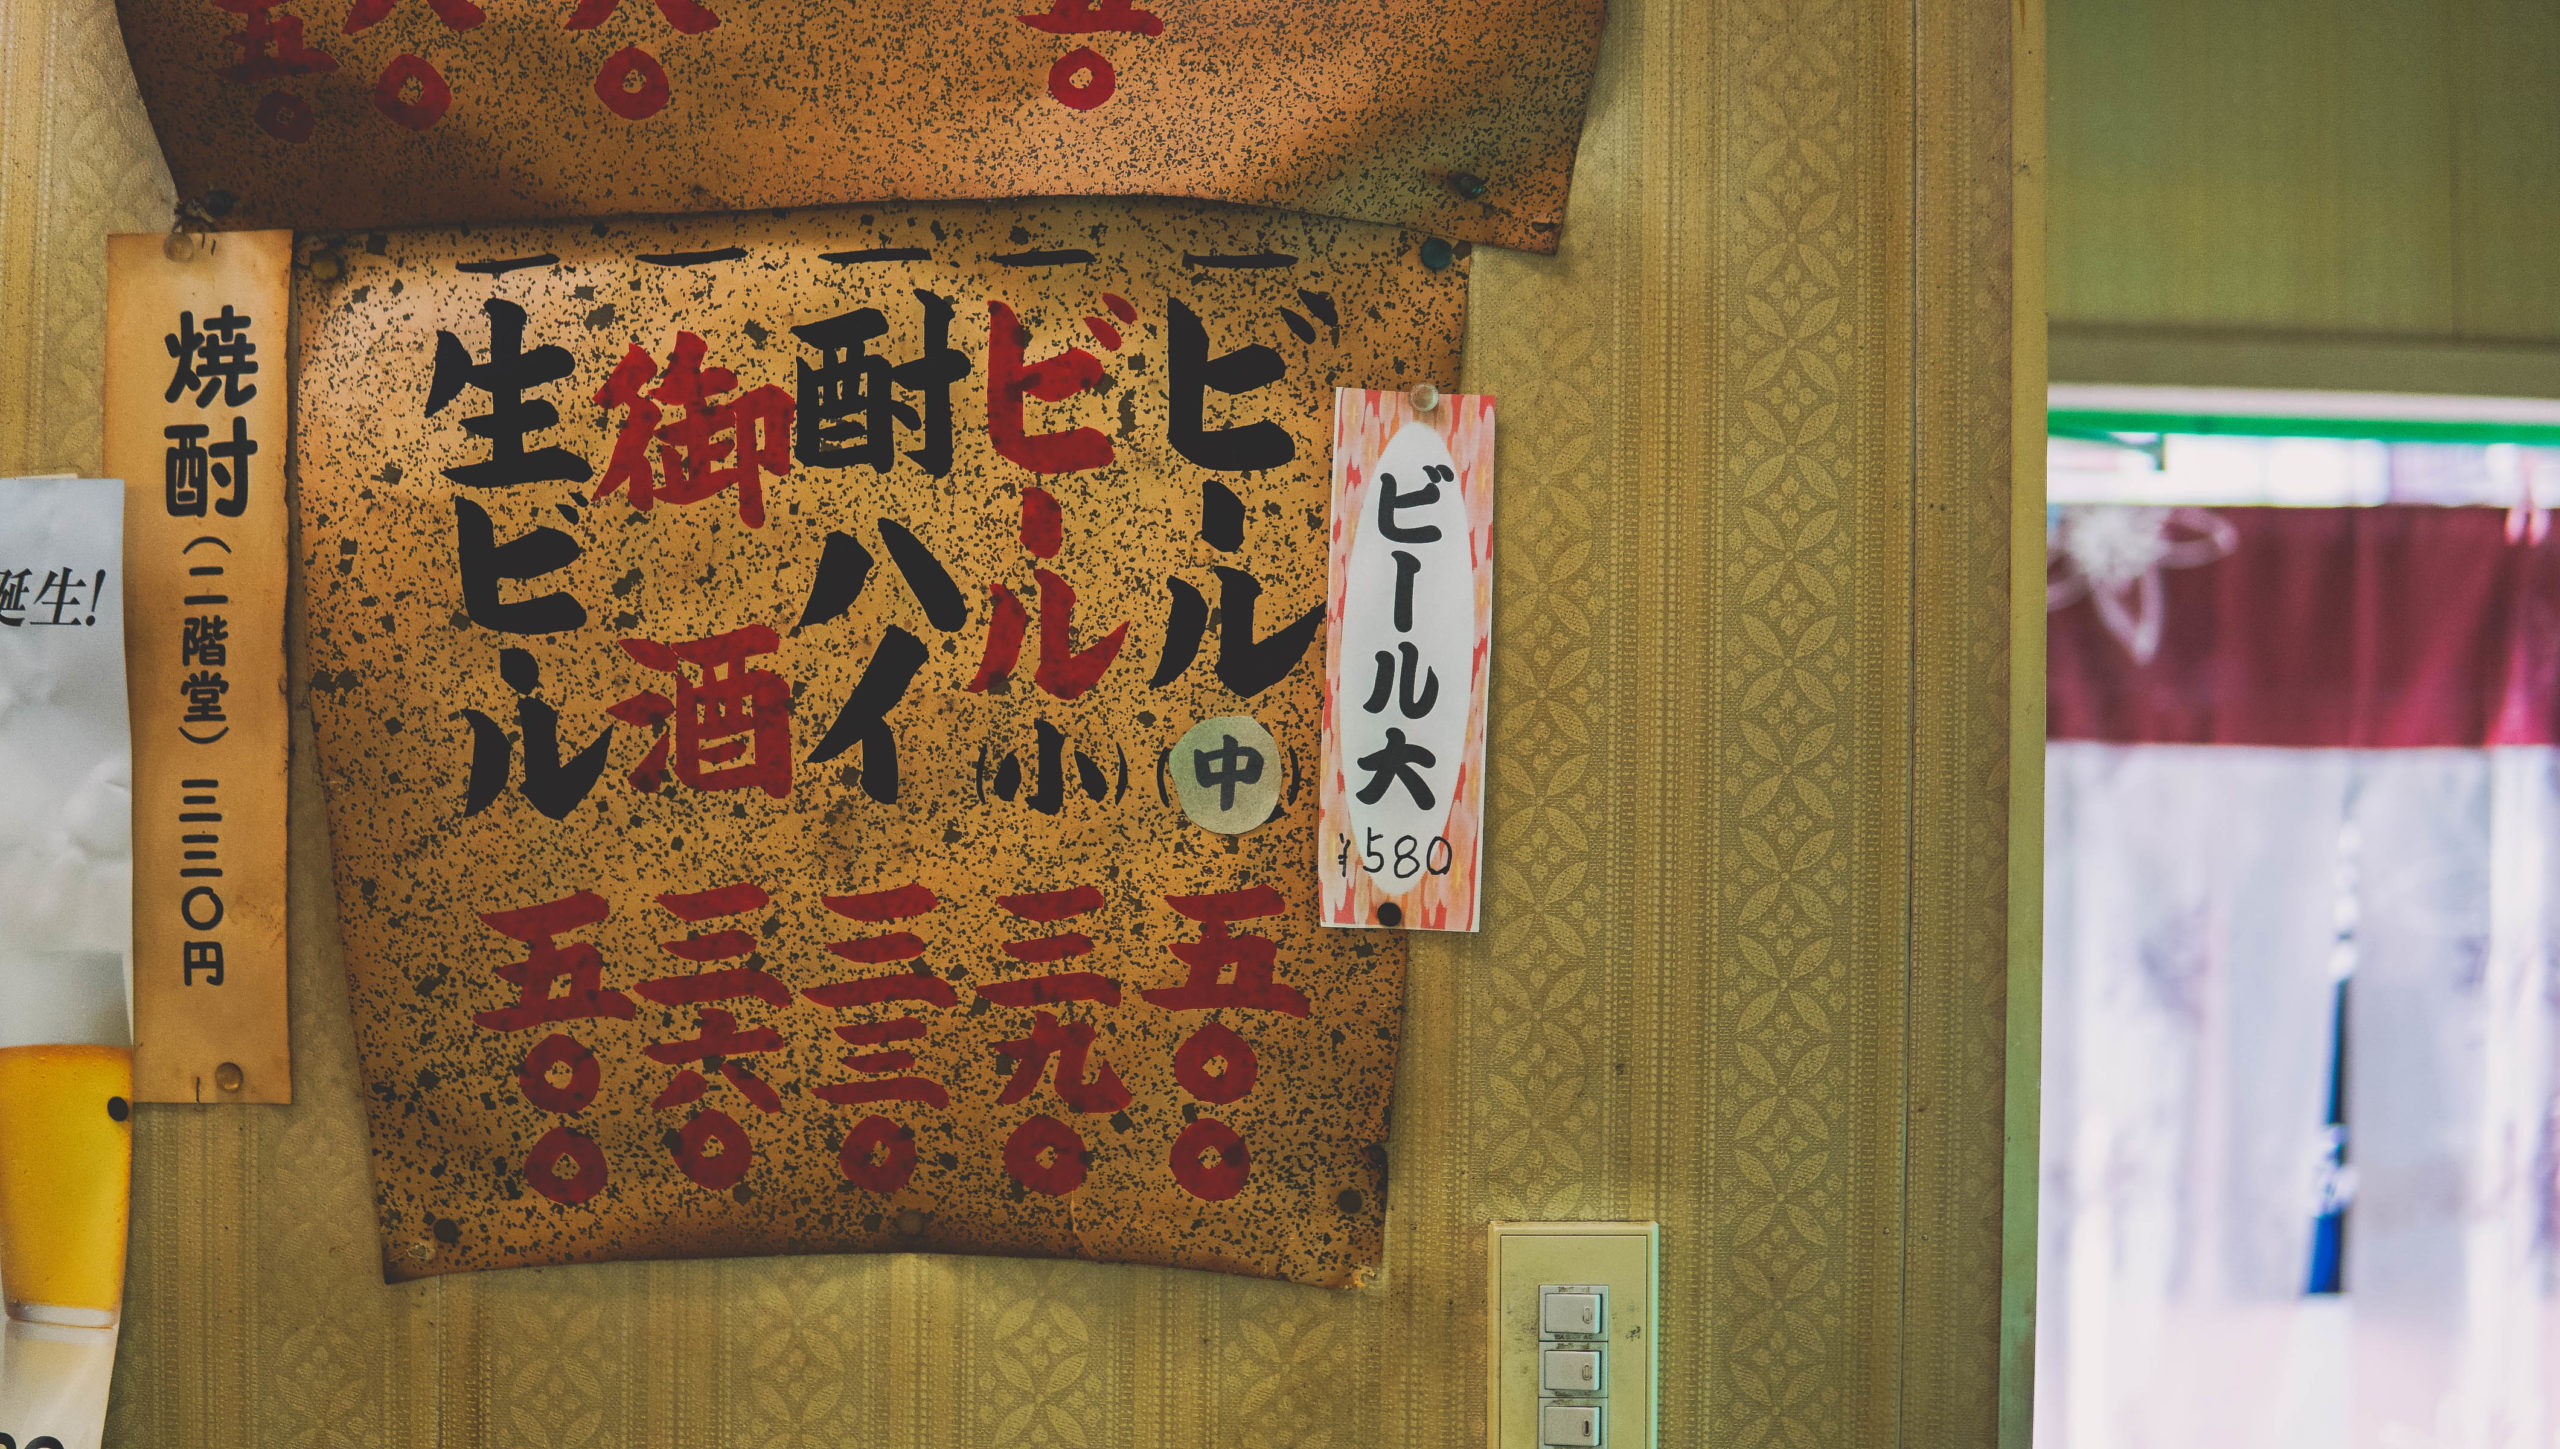 五〇
〇
〇
五〇
ビール大
¥580
一ビール(中) 五〇〇
一ビール(小) 三九〇
一酎ハイ 三三〇
一御酒 三六〇
一生ビール 五〇〇
焼酎(二階堂) 三三〇円
生!